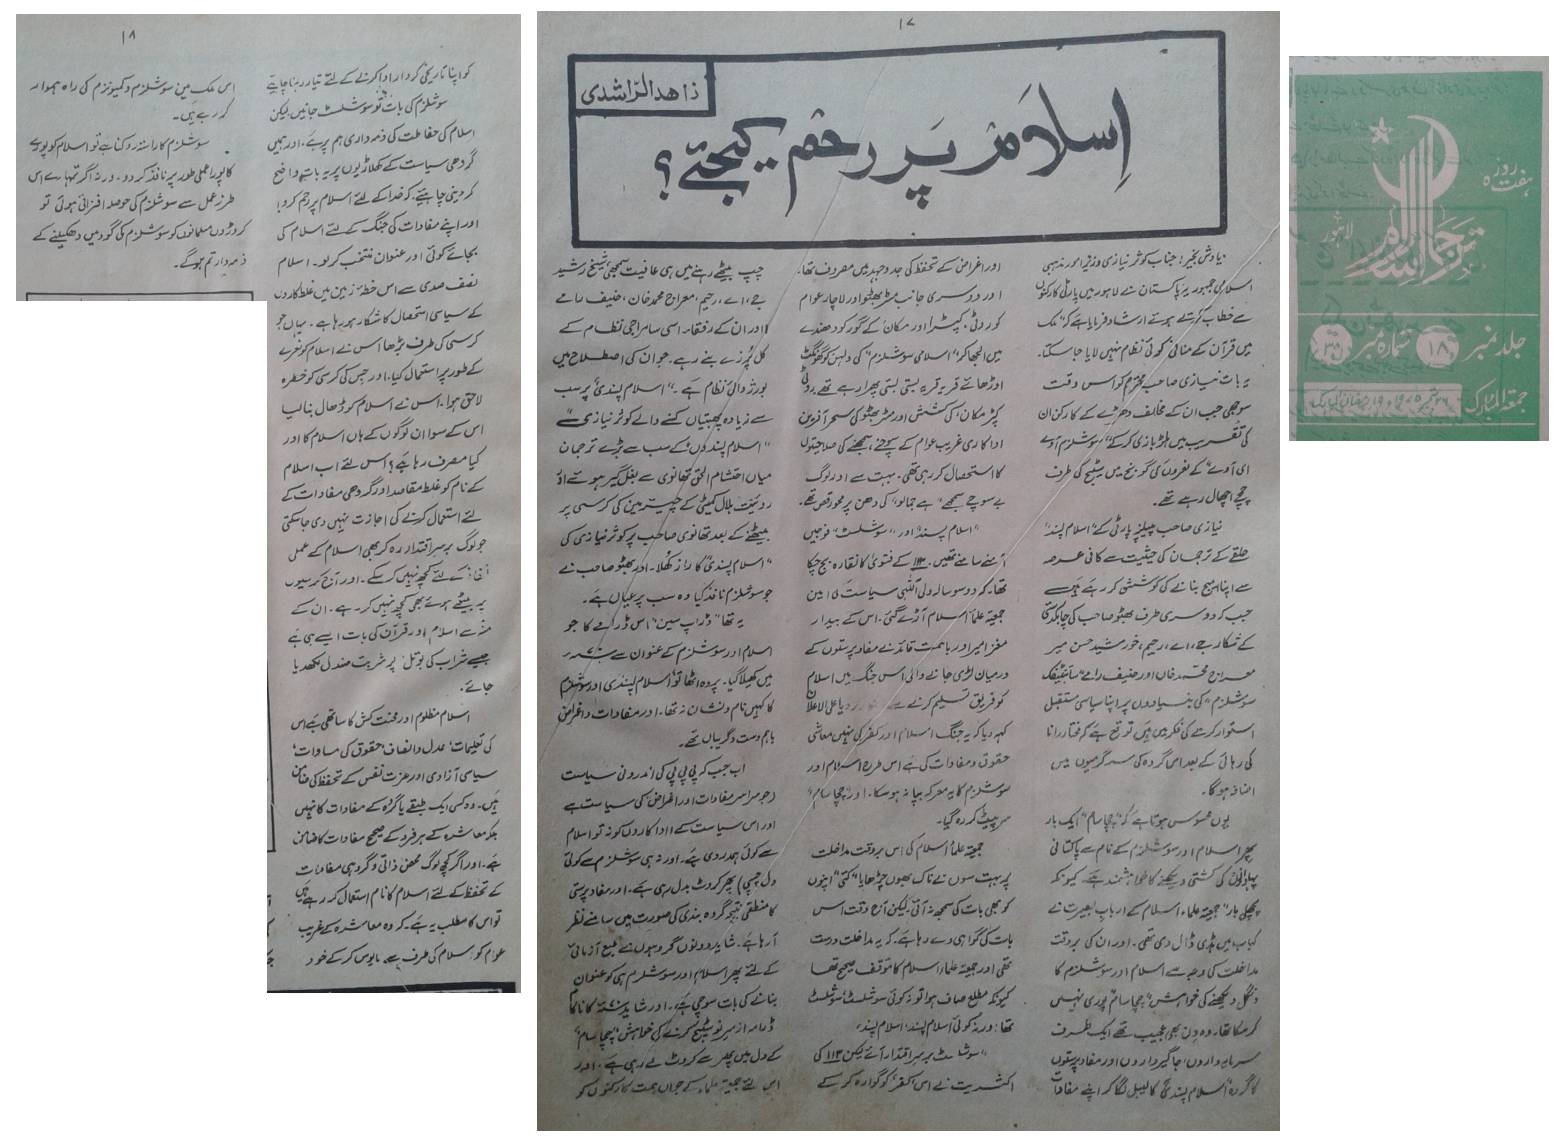 ۱۷
زاھد الراشدی
اسلام پر رحم کیجئے؟
یادش بخیر! جناب کوثر نیازی وزیر امور مذہبی
اسلامی جمہوریہ پاکستان نے لاہور میں پارٹی کارکنوں
سے خطاب کرتے ہوئے ارشاد فرمایا ہے کہ "ملک
میں قرآن کے منافی کوئی نظام نہیں لایا جا سکتا۔
یہ بات نیازی صاحب محترم کو اس وقت
سوجھی جب ان کے مخالف دھڑے کے کارکن ان
کی تقریب میں ہلڑ بازی کر کے "سوشلزم آوے
ای آوے" کے نعروں کی گونج میں سٹیج کی طرف
جوتے اچھال رہے تھے
نیازی صاحب پیپلز پارٹی کے "اسلام پسند"
حلقے کے ترجمان کی حیثیت سے کافی عرصہ
سے اپنا امیج بنانے کی کوشش کر رہے ہیں
جب کہ دوسری طرف بھٹو صاحب کی چابکدستی
کے شکار جے، اے، رحیم، خورشید حسن میر
معراج محمد خاں اور حنیف رامے "سائنٹیفک
سوشلزم" کی بنیادوں پر اپنا سیاسی مستقبل
استوار کرنے کی فکر میں ہیں توقع ہے کہ مختار رانا
کی رہائی کے بعد اس گروہ کی سرگرمیوں میں
اضافہ ہو گا۔
یوں محسوس ہوتا ہے کہ "چچا سام" ایک بار
پھر اسلام اور سوشلزم کے نام سے پاکستانی
پہلوانوں کی کشتی دیکھنے کا خواہشمند ہے۔ کیونکہ
پچھلی بار" جمعیۃ علماء اسلام کے ارباب بصیرت نے
کباب میں ہڈی ڈال دی تھی۔ اور ان کی بروقت
مداخلت کی وجہ سے اسلام اور سوشلزم کا
دنگل دیکھنے کی خواہش "چچا سام" پوری نہیں
کر سکا تھا، وہ دن بھی عجیب تھے ایک طرف
سرمایہ داروں، جاگیرداروں اور مفاد پرستوں
کا گروہ "اسلام پسندی" کا لیبل لگا کر اپنے مفادات
اور اغراض کے تحفظ کی جدوجہد میں مصروف تھا۔
اور دوسری جانب مسٹر بھٹو اور لاچار عوام
کو روٹی، کپڑا اور مکان کے گورکھ دھندے
میں الجھا کر "اسلامی سوشلزم" کی دلہن کو گھونگٹ
اوڑھائے قریہ قریہ بستی بستی پھرا رہے تھے روٹی
کپڑ مکان کی کشش اور مسٹر بھٹو کی سحر آفرین
اداکاری غریب عوام کے سوچنے، سمجھنے کی صلاحیتوں
کا استحصال کر رہی تھی۔ بہت سے اور لوگ
بے سوچے سمجھے "ہے جمالو" کی دھن پر محو رقص تھے۔
"اسلام پسند" اور "سوشلسٹ" فوجیں
آمنے سامنے تھیں۔ ۱۱۳ کے فتویٰ کا نقارہ بج چکا
تھا۔ کہ دو سو سالہ ولی اللٰہی سیاست کی امین
جمعیۃ علماء اسلام آڑے آ گئی۔ اس کے بیدار
مغز امیر اور باہمت قائد نے مفاد پرستوں کے
درمیان لڑی جانے والی اس جنگ میں اسلام
کو فریق تسلیم کرنے سے انکار کر دیا علی الاعلان
کہہ دیا کہ یہ جنگ اسلام اور کفر کی نہیں معاشی
حقوق و مفادات کی ہے اس طرح اسلام اور
سوشلزم کا یہ معرکہ بپا نہ ہو سکا۔ اور "چچا سام"
سر پیٹ کر رہ گیا۔
جمعیۃ علماء اسلام کی اس بروقت مداخلت
پر بہت سوں نے ناک بھوں چڑھایا "کئی" اپنوں
کو بھی بات کی سمجھ نہ آئی۔ لیکن آج وقت اس
بات کی گواہی دے رہا ہے۔ کہ یہ مداخلت درست
تھی اور جمعیۃ علماء اسلام کا موقف صحیح تھا
کیونکہ مطلع صاف ہوا تو نہ کوئی سوشلسٹ سوشلسٹ
تھا؛ اور نہ کوئی اسلام پسند، اسلام پسند،
"سوشلسٹ برسر اقتدار آئے لیکن ۱۱۳ کی
اکثریت نے اس "کفر" کو گوارہ کر کے
چپ بیٹھے رہنے میں ہی عافیت سمجھی، شیخ رشید
جے، اے، رحیم، معراج محمد خان، حنیف رامے
اور ان کے رفقاء اسی سامراجی نظام کے
کل پُرزے بنے رہے۔ جو ان کی اصطلاح میں
بورژوائی نظام ہے۔ "اسلام پسندی" پر سب
سے زیادہ پھبتیاں کسنے والے کوثر نیازی سے
"اسلام پسندوں" کے سب سے بڑے ترجمان
میاں احتشام الحق تھانوی سے بغل گیر ہوئے اور
رویت ہلال کمیٹی کے چیئرمین کی کرسی پر
بیٹھنے کے بعد تھانوی صاحب پر کوثر نیازی کی
"اسلام پسندی" کا راز کھلا۔ اور بھٹو صاحب نے
جو سوشلزم نافذ کیا وہ سب پر عیاں ہے۔
یہ تھا "ڈراپ سین" اس ڈرامے کا جو
اسلام اور سوشلزم کے عنوان سے ۷۰ء
میں کھیلا گیا۔ پردہ اٹھا تو "اسلام پسندی اور سوشلزم
کا کہیں نام و نشان نہ تھا۔ اور مفادات و اغراض
باہم دست و گریباں تھے۔
اب جب کہ پی پی پی کی اندرونی سیاست
(جو سراسر مفادات اور اغراض کی سیاست ہے
اور اس سیاست کے اداکاروں کو نہ تو اسلام
سے کوئی ہمدردی ہے۔ اور نہ ہی سوشلزم سے کوئی
دل چسپی) پھر کروٹ بدل رہی ہے۔ اور مفاد پرستی
کا منطقی نتیجہ گروہ بندی کی صورت میں سامنے نظر
آ رہا ہے۔ شاید دونوں گروہوں نے طبع آزمائی
کے لئے پھر اسلام اور سوشلزم ہی کو عنوان
بنانے کی بات سوچی ہے۔ اور شاید ۷۰ء کا ناکام
ڈرامہ از سر نو سٹیج کرنے کی خواہش "چچا سام"
کے دل میں پھر سے کروٹ لے رہی ہے۔ اور
اس لئے جمعیۃ علماء کے جواں ہمت کارکنوں کو
۱۸
کو اپنا تاریخی کردار ادا کرنے کے لئے تیار رہنا چاہیئے
سوشلزم کی بات تو سوشلسٹ جانیں لیکن
اسلام کی حفاظت کی ذمہ داری ہم پر ہے، اور ہمیں
گروہی سیاست کے کھلاڑیوں پر یہ بات واضح
کر دینی چاہیئے کہ خدا کے لئے اسلام پر رحم کرو!
اور اپنے مفادات کی جنگ کے لئے اسلام کی
بجائے کوئی اور عنوان منتخب کر لو۔ اسلام
نصف صدی سے اس خطہ زمین میں غلط کاروں
کے سیاسی استحصال کا شکار ہو رہا ہے۔ یہاں جو
کرسی کی طرف بڑھا اس نے اسلام کو نعرے
کے طور پر استعمال کیا۔ اور جس کی کرسی کو خطرہ
لاحق ہوا۔ اس نے اسلام کو ڈھال بنا لیا
اس کے سوا ان لوگوں کے ہاں اسلام کا اور
کیا مصرف رہا ہے؟ اس لئے اب اسلام
کے نام کو غلط مقاصد اور گروہی مفادات کے
لئے استعمال کرنے کی اجازت نہیں دی جا سکتی
جو لوگ برسر اقتدار رہ کر بھی اسلام کے عمل
کے لئے کچھ نہیں کر سکے۔ اور آج کرسیوں
پہ بیٹھے ہوئے بھی کچھ نہیں کر رہے۔ ان کے
منہ سے اسلام اور قرآن کی بات ایسے ہی ہے
جیسے شراب کی بوتل پر شربت صندل لکھ دیا
جائے۔
اسلام مظلوم اور محنت کش کا ساتھی ہے اس
کی تعلیمات عدل و انصاف حقوق کی مساوات
سیاسی آزادی اور عزت نفس کے تحفظ کی ضامن
ہیں۔ وہ کسی ایک طبقے یا گروہ کے مفادات کا نہیں
بلکہ معاشرہ کے ہر فرد کے صحیح مفادات کا ضامن
ہے۔ اور اگر کچھ لوگ محض ذاتی و گروہی مفادات
کے تحفظ کے لئے اسلام کا نام استعمال کر رہے ہیں
تو اس کا مطلب یہ ہے۔ کہ وہ معاشرہ کے غریب
عوام کو اسلام کی طرف سے مایوس کر کے خود
اس ملک میں سوشلزم و کمیونزم کی راہ ہموار
کر رہے ہیں۔
سوشلزم کا راستہ روکنا ہے تو اسلام کو پورے
کا پورا عملی طور پر نافذ کر دو۔ ورنہ اگر تمہارے اس
طرز عمل سے سوشلزم کی حوصلہ افزائی ہوئی تو
کروڑوں مسلمانوں کو سوشلزم کی گود میں دھکیلنے کے
ذمہ دار تم ہو گے۔
ہفت روزہ
ترجمان اسلام
لاہور
جلد نمبر ۱۸ شمارہ نمبر
جمعۃ المبارک